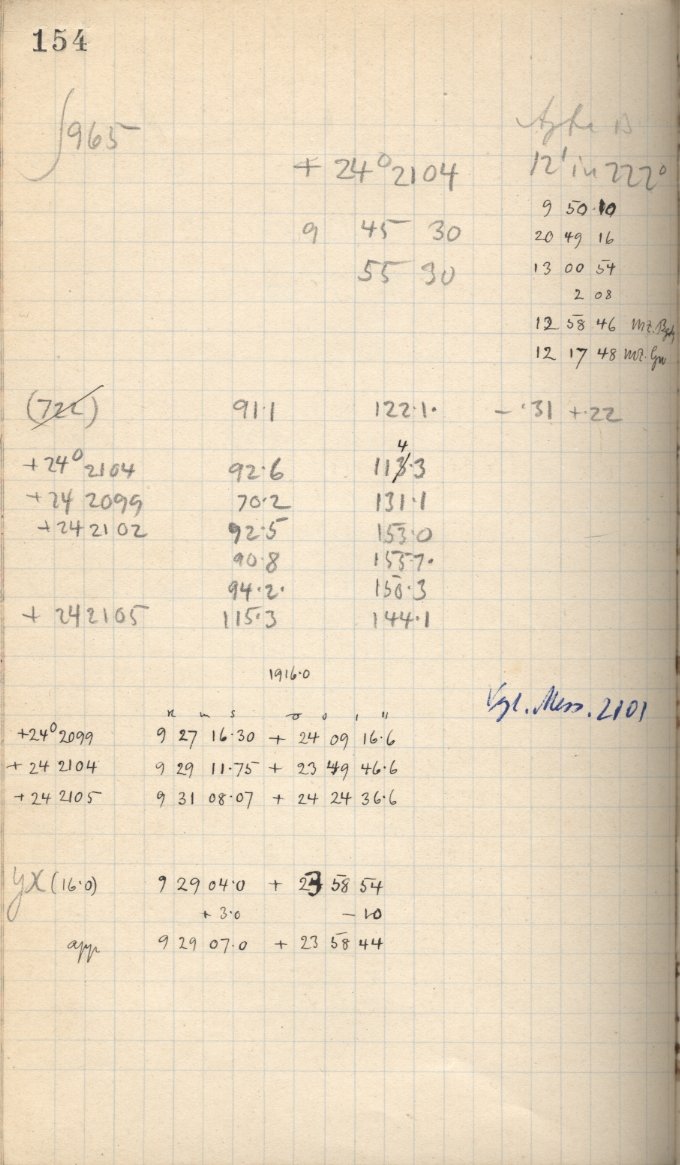 154
965
+ 24° 2104
9 45 30
55 30
12' in 222°
9 50 10
20 49 16
13 00 54
2 08
12 58 46 mz.
12 17 48 mz. Gw
(722) 91.1 122.1. - .31 + .22
+24° 2104 92.6 114.3
+24 2099 70.2 131.1
+24 2102 92.5 153.0
90.8 155.7.
94.2. 150.3
+ 24 2105 115.3 144.1
1916.0
h m s ° ' "
+24° 2099 9 27 16.30 + 24 09 16.6
+ 24 2104 9 29 11.75 + 23 49 46.6
+ 24 2105 9 31 08.07 + 24 24 36.6
Vgl. Mess. 2101
YX (16.0) 9 29 04.0 + 23 58 54
+ 3.0 - 10
app 9 29 07.0 + 23 58 44